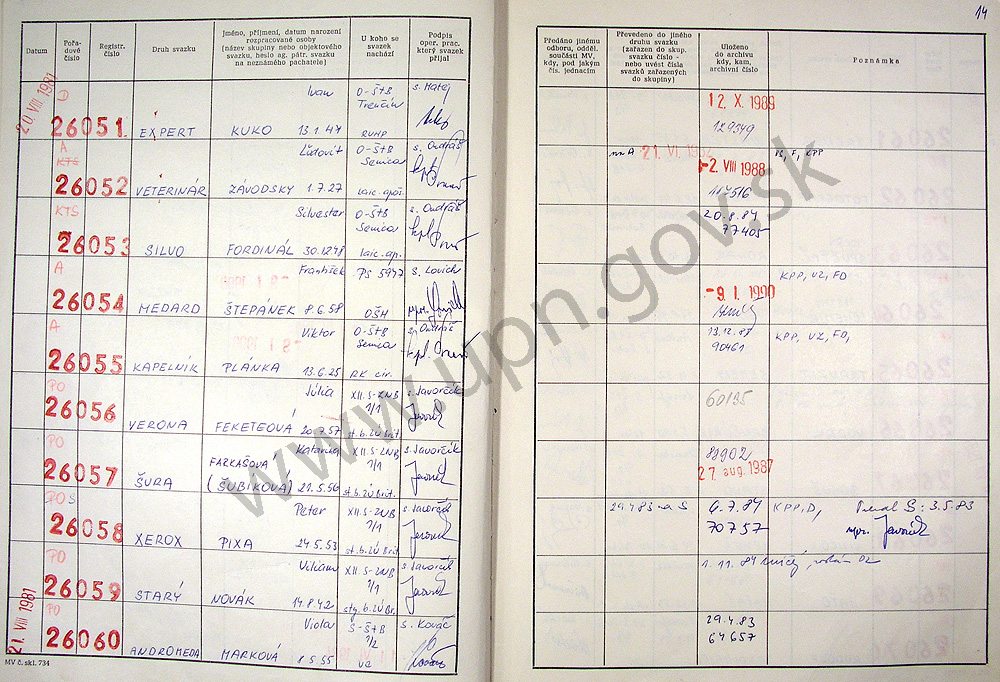 Datum
Pořadové číslo
Registr. číslo
Druh svazku
Jméno, příjmení, datum narození
rozpracované osoby
(název skupiny nebo objektového
svazku, heslo ag. pátr. svazku
na neznámého pachatele)
U koho se
svazek
nachází
Podpis
oper. prac.
který svazek
přijal
20. VIII 1981
D
26051.
EXPERT
Ivan
KUKO 13.1.47
O-ŠtB
Trenčín
s. Matej
A
KTS
26052
VETERINÁR
Ľudovít
ZÁVODSKY 1.7.27
O-ŠtB
Senica
s. Ondráš
KTS
26053
SILVO
Silvester
FORDINÁL 30.12.48
O-ŠtB
Senica
laic. ap.
s. Ondráš
A
26054
MEDARD
František
ŠTEPÁNEK 8.6.58
PS 5947
OŠH
A
26055
KAPELNÍK
Viktor
PLÁNKA 13.6.25
O-ŠtB
Senica
PO
26056
VERONA
Júlia
FEKETEOVÁ 20.7.57
XII. S-ZNB
1/1
s. Javorčík
PO
26057
ŠURA
Katarína
FARKAŠOVÁ
(ŠUBÍKOVÁ) 21.5.56
XII. S-ZNB
1/1
s. Javorčík
POS
26058
XEROX
Peter
PIXA 24.5.53
XII. S-ZNB
1/1
s. Javorčík
PO
26059
STARÝ
Viliam
NOVÁK 14.8.42
XII. S-ZNB
1/1
s. Javorčík
21. VIII 1981
PO
26060
ANDROMEDA
Viola
MARKOVÁ 8.5.55
S-ŠtB
s. Kováč
MV č. skl. 734
14
Předáno jinému
odboru, odděl.
součásti MV,
kdy, pod jakým
čís. jednacím
Převedeno do jiného
druhu svazku
(zařazen do skup.
svazku číslo -
nebo uvést čísla
svazků zařazených
do skupiny)
Uloženo
do archivu
kdy, kam,
archivní číslo
Poznámka
12. X. 1989
129349
-2. VIII 1988
117516
20.8.84
77405
-9. I. 1990
KPP, VZ, FO
90461
KPP, VZ, FO,
60195
88902
27. aug. 1987
29.4.83 na S
6.7.84
70757
KPP, D,
3.5.83
1.11.84
29.4.83
64657
www.upn.gov.sk